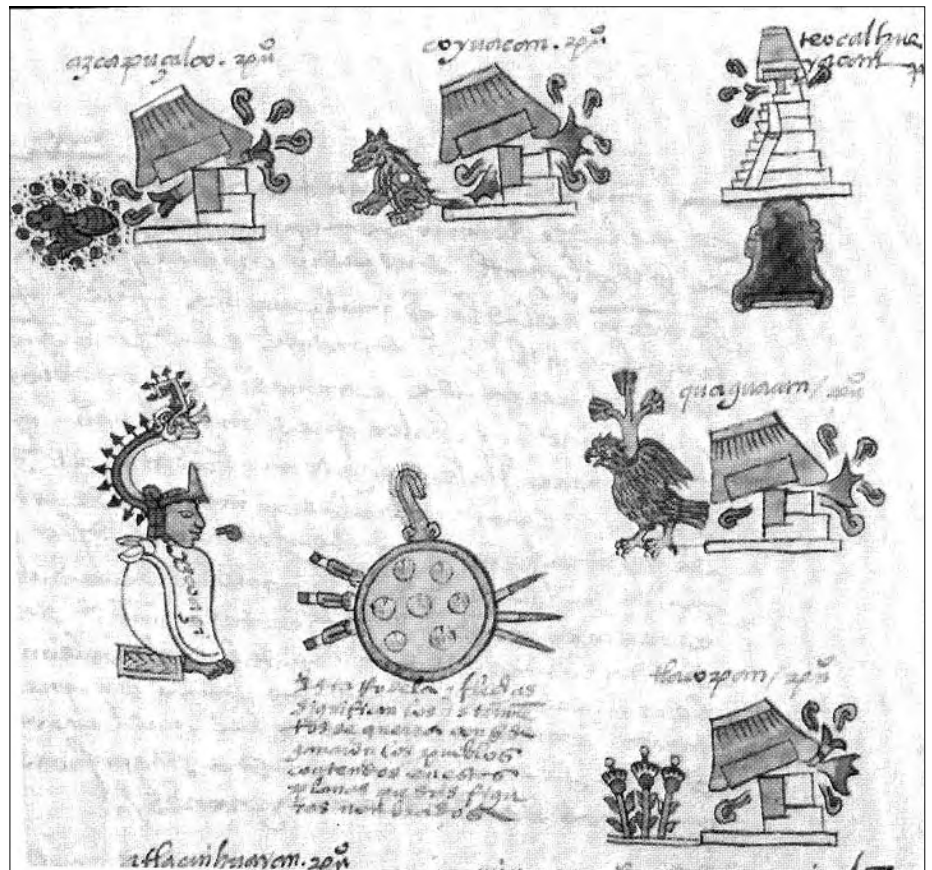 azcapuçalco. puº
coyuacan. puº
teocalhue
yacan pº
quaguacan / puº
ytzcoaçi
Esta Rodela y flechas
significan los istrume
tos de guerra con q̃ se
ganaron los pueblos
contenidos en estas
planas por sus figu
ras nonbrados
tlacopan / puº
atlacuihuayan. puº